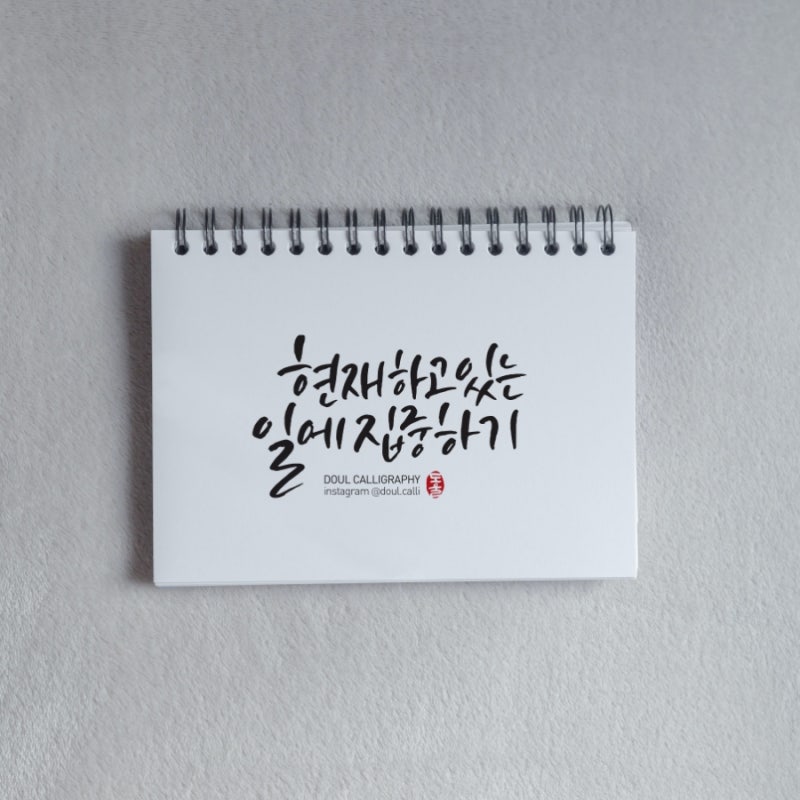 현재하고있는
일에 집중하기
DOUL CALLIGRAPHY
instagram @doul.calli
도울